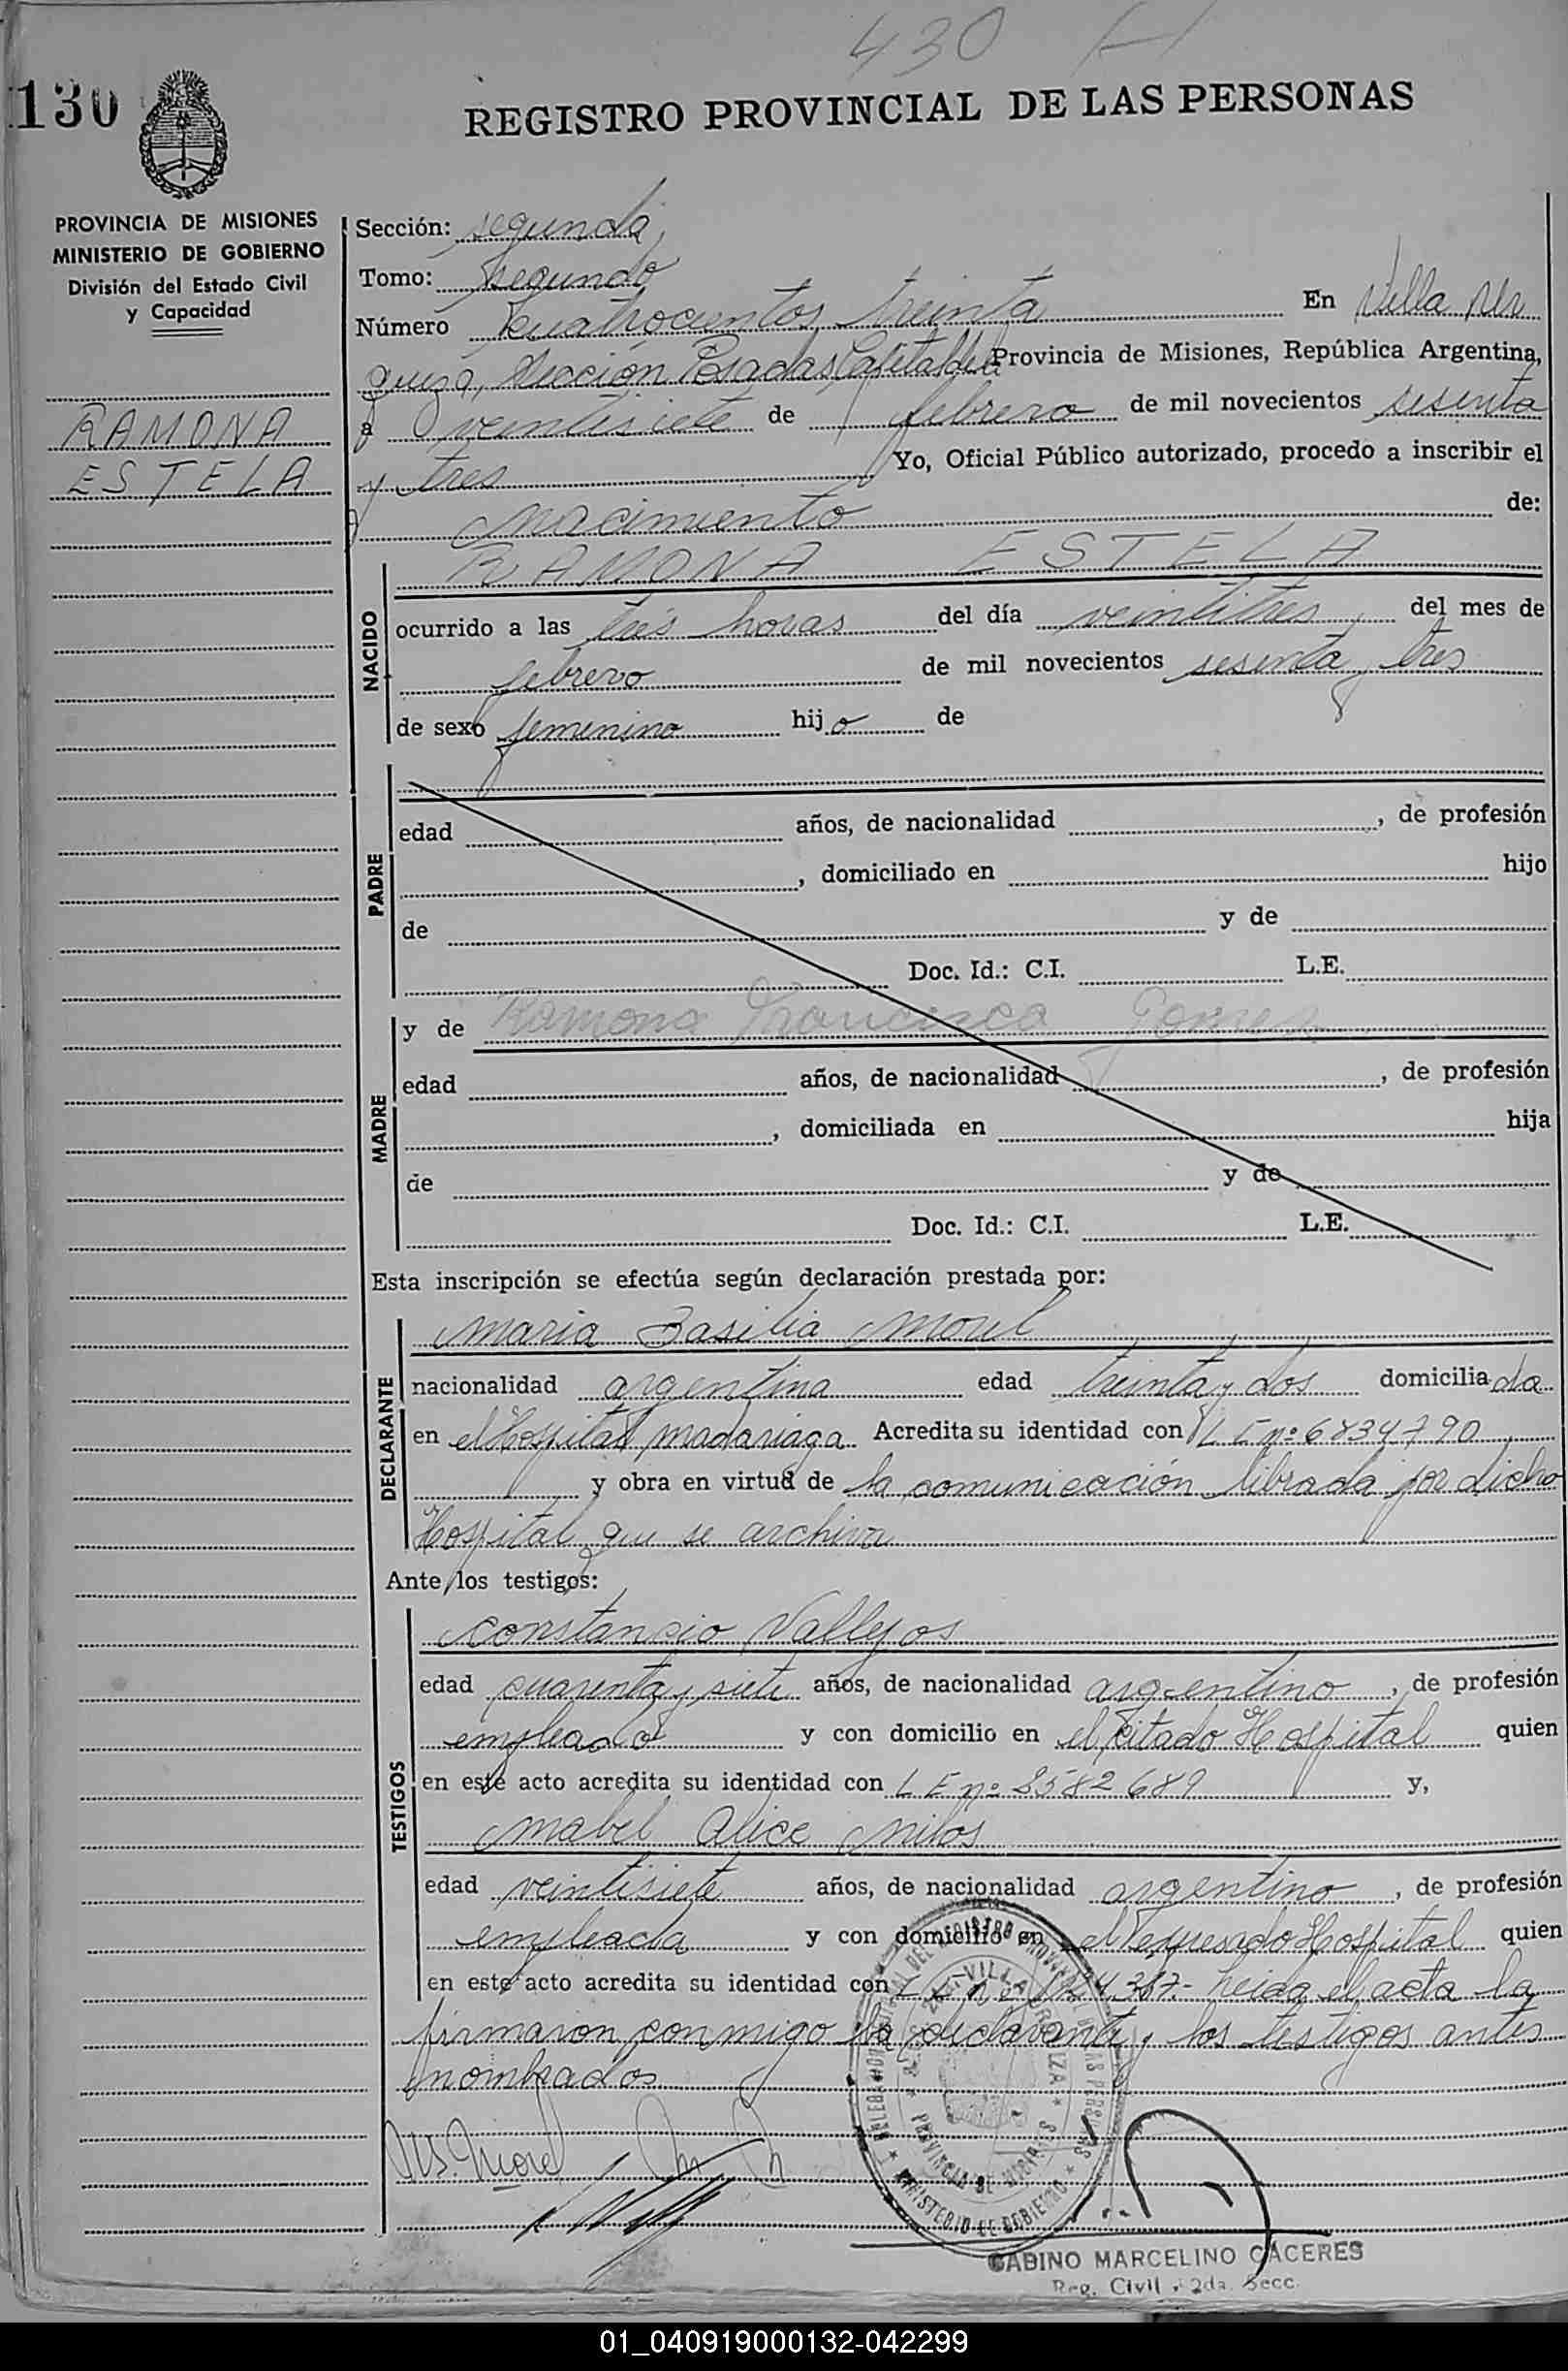 430
130
REGISTRO PROVINCIAL DE LAS PERSONAS
PROVINCIA DE MISIONES
MINISTERIO DE GOBIERNO
División del Estado Civil
y Capacidad
RAMONA
ESTELA
Sección: segunda
Tomo: segundo
Número cuatrocientos treinta En Villa Ur
quiza, Sección Posadas Capital de la Provincia de Misiones, República Argentina,
a veintisiete de febrero de mil novecientos sesenta
y tres Yo, Oficial Público autorizado, procedo a inscribir el
nacimiento de:
NACIDO
RAMONA ESTELA
ocurrido a las tres horas del día veintitres del mes de
febrero de mil novecientos sesenta y tres
de sexo femenino hijo de
PADRE
edad años, de nacionalidad , de profesión
, domiciliado en hijo
de y de
Doc. Id.: C.I. L.E.
MADRE
y de Ramona Francisca Gomez
edad años, de nacionalidad , de profesión
, domiciliada en hija
de y de
Doc. Id.: C.I. L.E.
Esta inscripción se efectúa según declaración prestada por:
DECLARANTE
Maria Basilia Morel
nacionalidad argentina edad treinta y dos domiciliada
en el Hospital Madariaga Acredita su identidad con L E nº 6834790
y obra en virtud de la comunicación librada por dicho
Hospital que se archiva
Ante los testigos:
TESTIGOS
Constancio Vallejos
edad cuarenta y siete años, de nacionalidad argentino, de profesión
empleado y con domicilio en el citado Hospital quien
en este acto acredita su identidad con L E nº 8582689 y,
Mabel Alice Milos
edad veintisiete años, de nacionalidad argentino, de profesión
empleada y con domicilio en el expresado Hospital quien
en este acto acredita su identidad con Leida el acta la
firmaron conmigo la declarante y los testigos antes
nombrados
M.B. Morel
GABINO MARCELINO CACERES
Reg. Civil 2da. Secc.
01_040919000132-042299